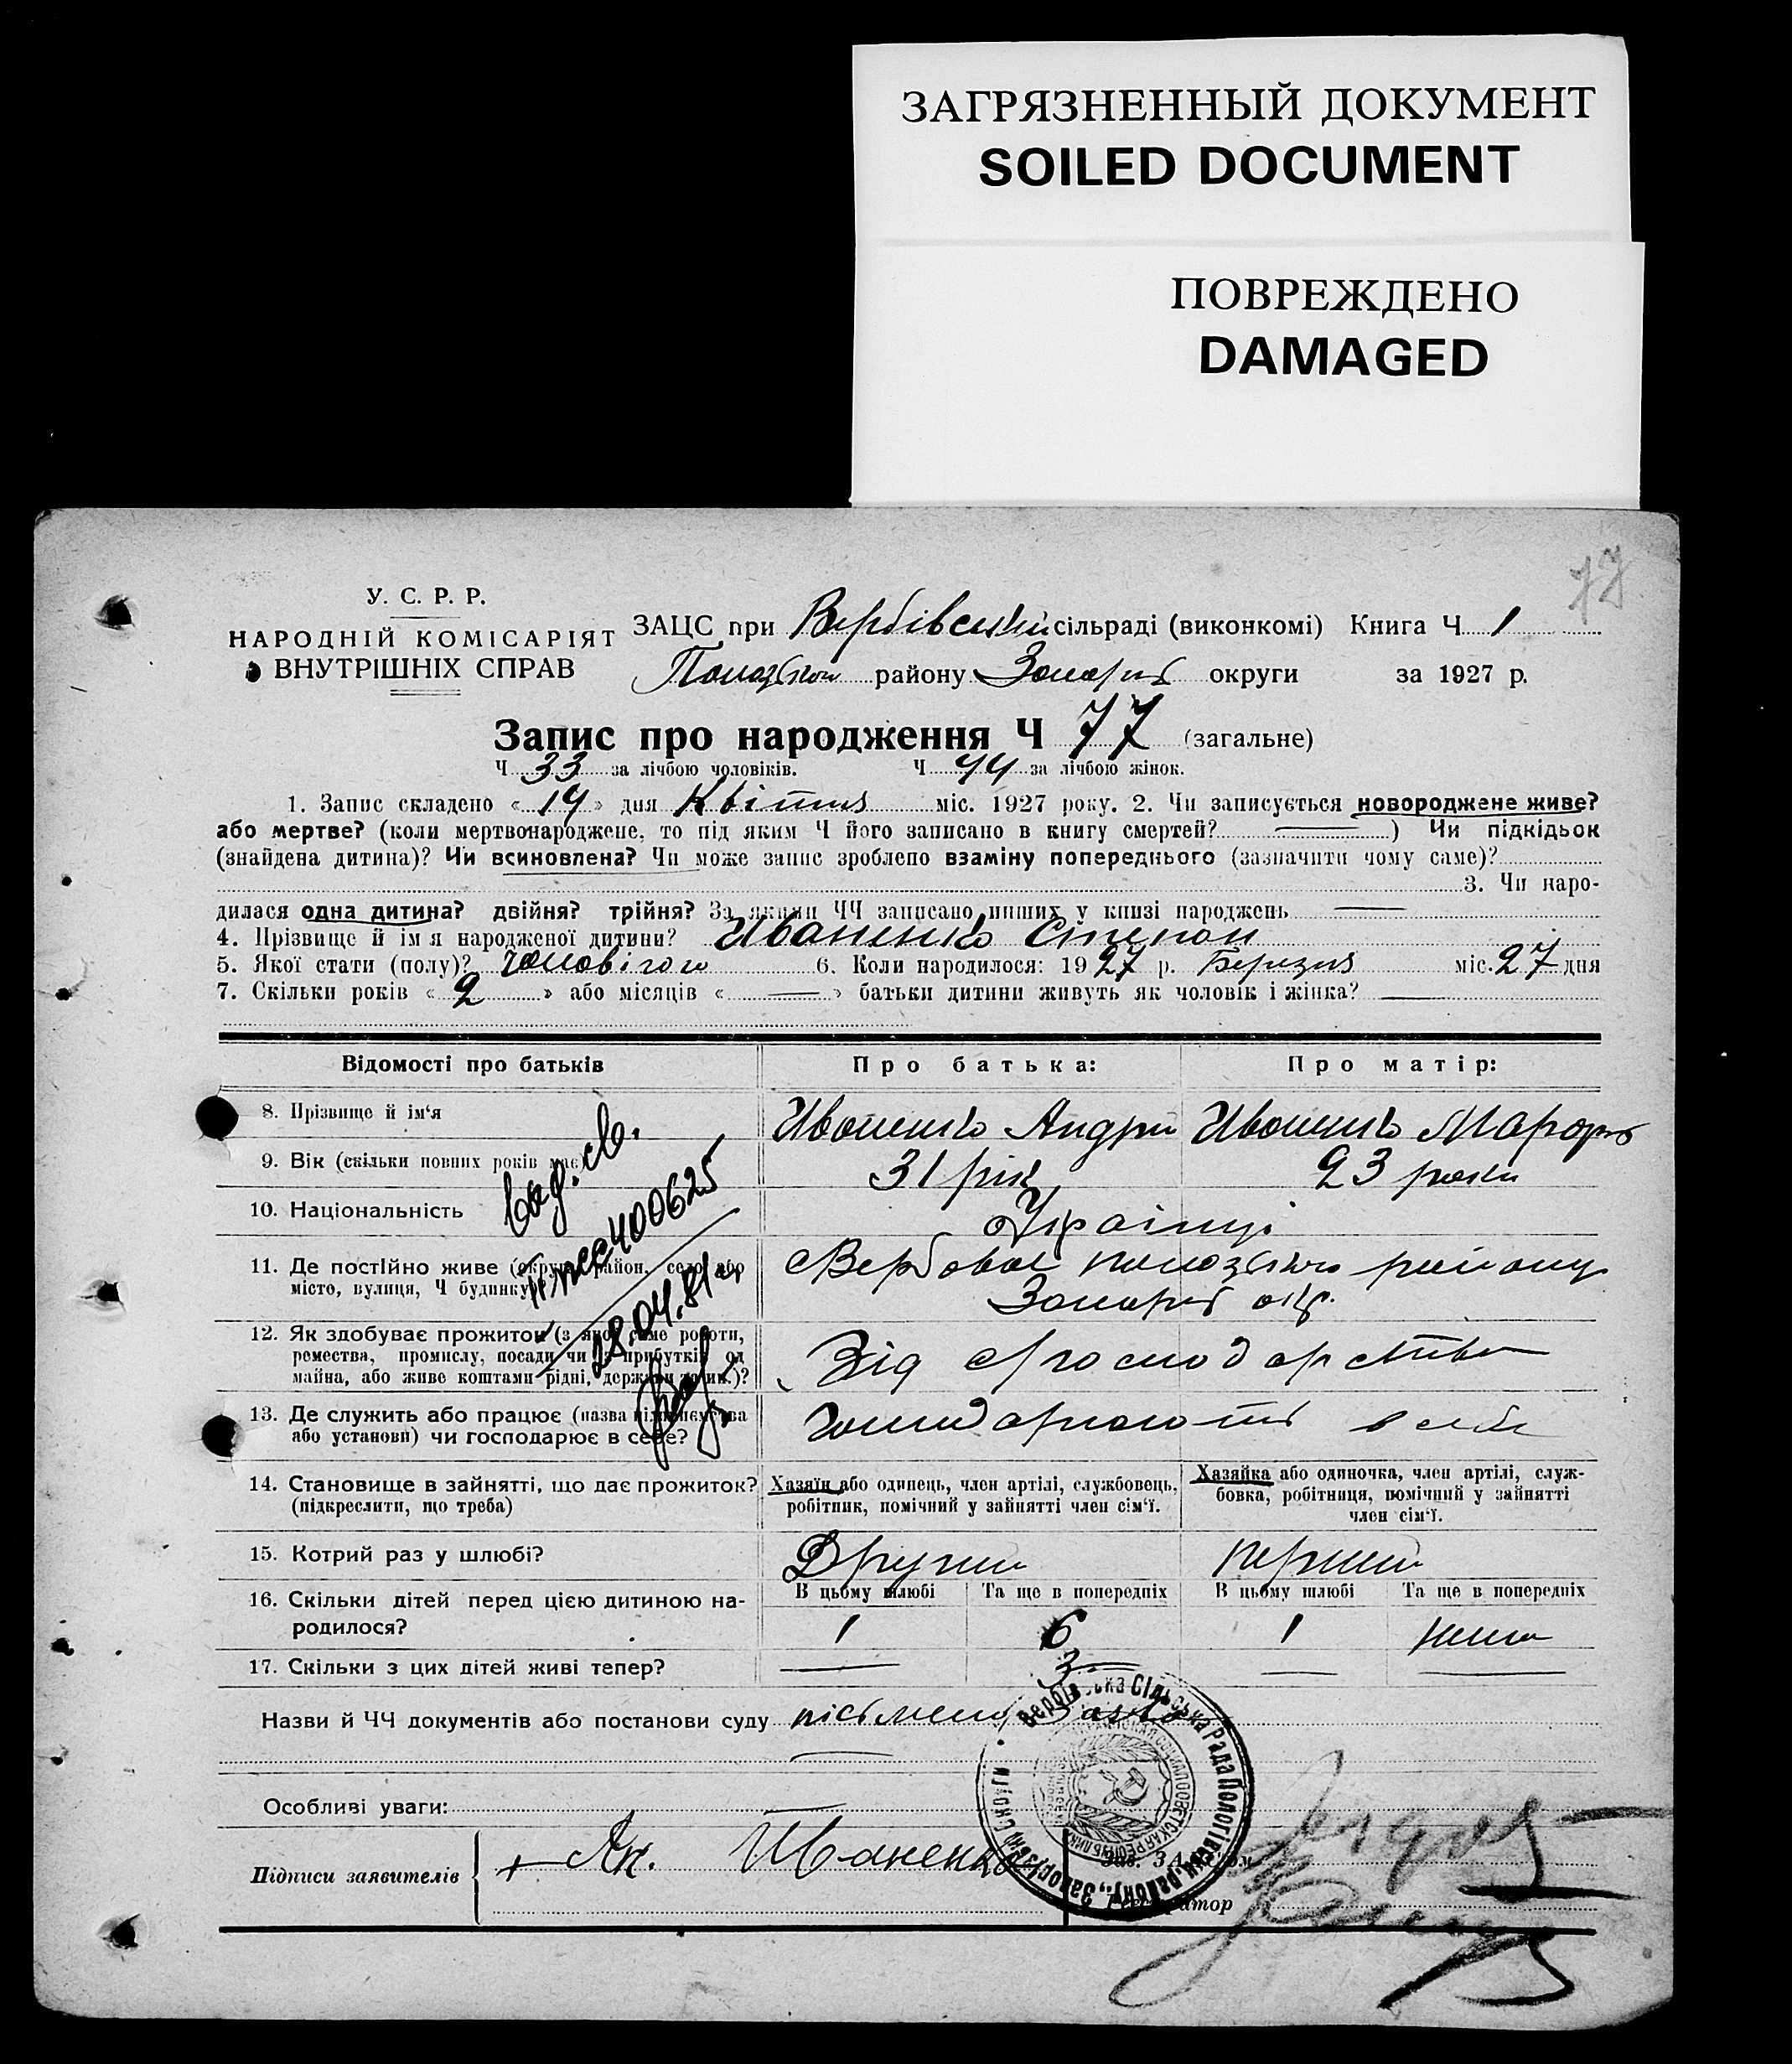 ЗАГРЯЗНЕННЫЙ ДОКУМЕНТ
SOILED DOCUMENT
ПОВРЕЖДЕНО
DAMAGED
77
У. С. Р. Р.
НАРОДНІЙ КОМІСАРІЯТ
ВНУТРІШНІХ СПРАВ
ЗАЦС при Вербівській сільраді (виконкомі) Книга Ч 1
району округи за 1927 р.
Запис про народження Ч 77 (загальне)
Ч 33 за лічбою чоловіків. Ч 44 за лічбою жінок.
1. Запис складено « 14 » дня Квітня міс. 1927 року. 2. Чи записується новороджене живе?
або мертве? (коли мертвонароджене, то під яким Ч його записано в книгу смертей? ) Чи підкідьок
(знайдена дитина)? Чи всиновлена? Чи може запис зроблено взаміну попереднього (зазначити чому саме)?
3. Чи наро-
дилася одна дитина? двійня? трійня? За якими ЧЧ записано инших у книзі народжень
4. Прізвище й ім'я народженої дитини? Иваненко Степан
5. Якої стати (полу)? чоловічого 6. Коли народилося: 1927 р. Березня міс. 27 дня
7. Скільки років « 2 » або місяців « — » батьки дитини живуть як чоловік і жінка? —
Відомості про батьків Про батька: Про матір:
8. Прізвище й ім'я Иваненко Андрій Иваненко
9. Вік (скільки повних років має) 31 рік 23 роки
10. Національність Українці
11. Де постійно живе (округа, район, село або
місто, вулиця, Ч будинку) Вербове району
окр.
12. Як здобуває прожиток (з якої саме роботи,
ремества, промислу, посади чи з прибутків од
майна, або живе коштами рідні, держави то ин.)?
Від господарства
13. Де служить або працює (назва підприємства
або установи) чи господарює в себе?
в себе
14. Становище в зайнятті, що дає прожиток?
(підкреслити, що треба)
Хазяїн або одинець, член артілі, службовець,
робітник, помічний у зайнятті член сім'ї.
Хазяйка або одиночка, член артілі, служ-
бовка, робітниця, помічний у зайнятті
член сім'ї.
15. Котрий раз у шлюбі? Другий перший
В цьому шлюбі Та ще в попередніх В цьому шлюбі Та ще в попередніх
16. Скільки дітей перед цією дитиною на-
родилося? 1 6 1 нема
17. Скільки з цих дітей живі тепер? — 3 — —
400625
28.04.81
Назви й ЧЧ документів або постанови суду
Особливі уваги:
Підписи заявителів Ан. Иваненко
Зав. ЗАЦСом
Реєстратор
Вербівська Сільська Рада Пологівськ. району, Запорізьк.